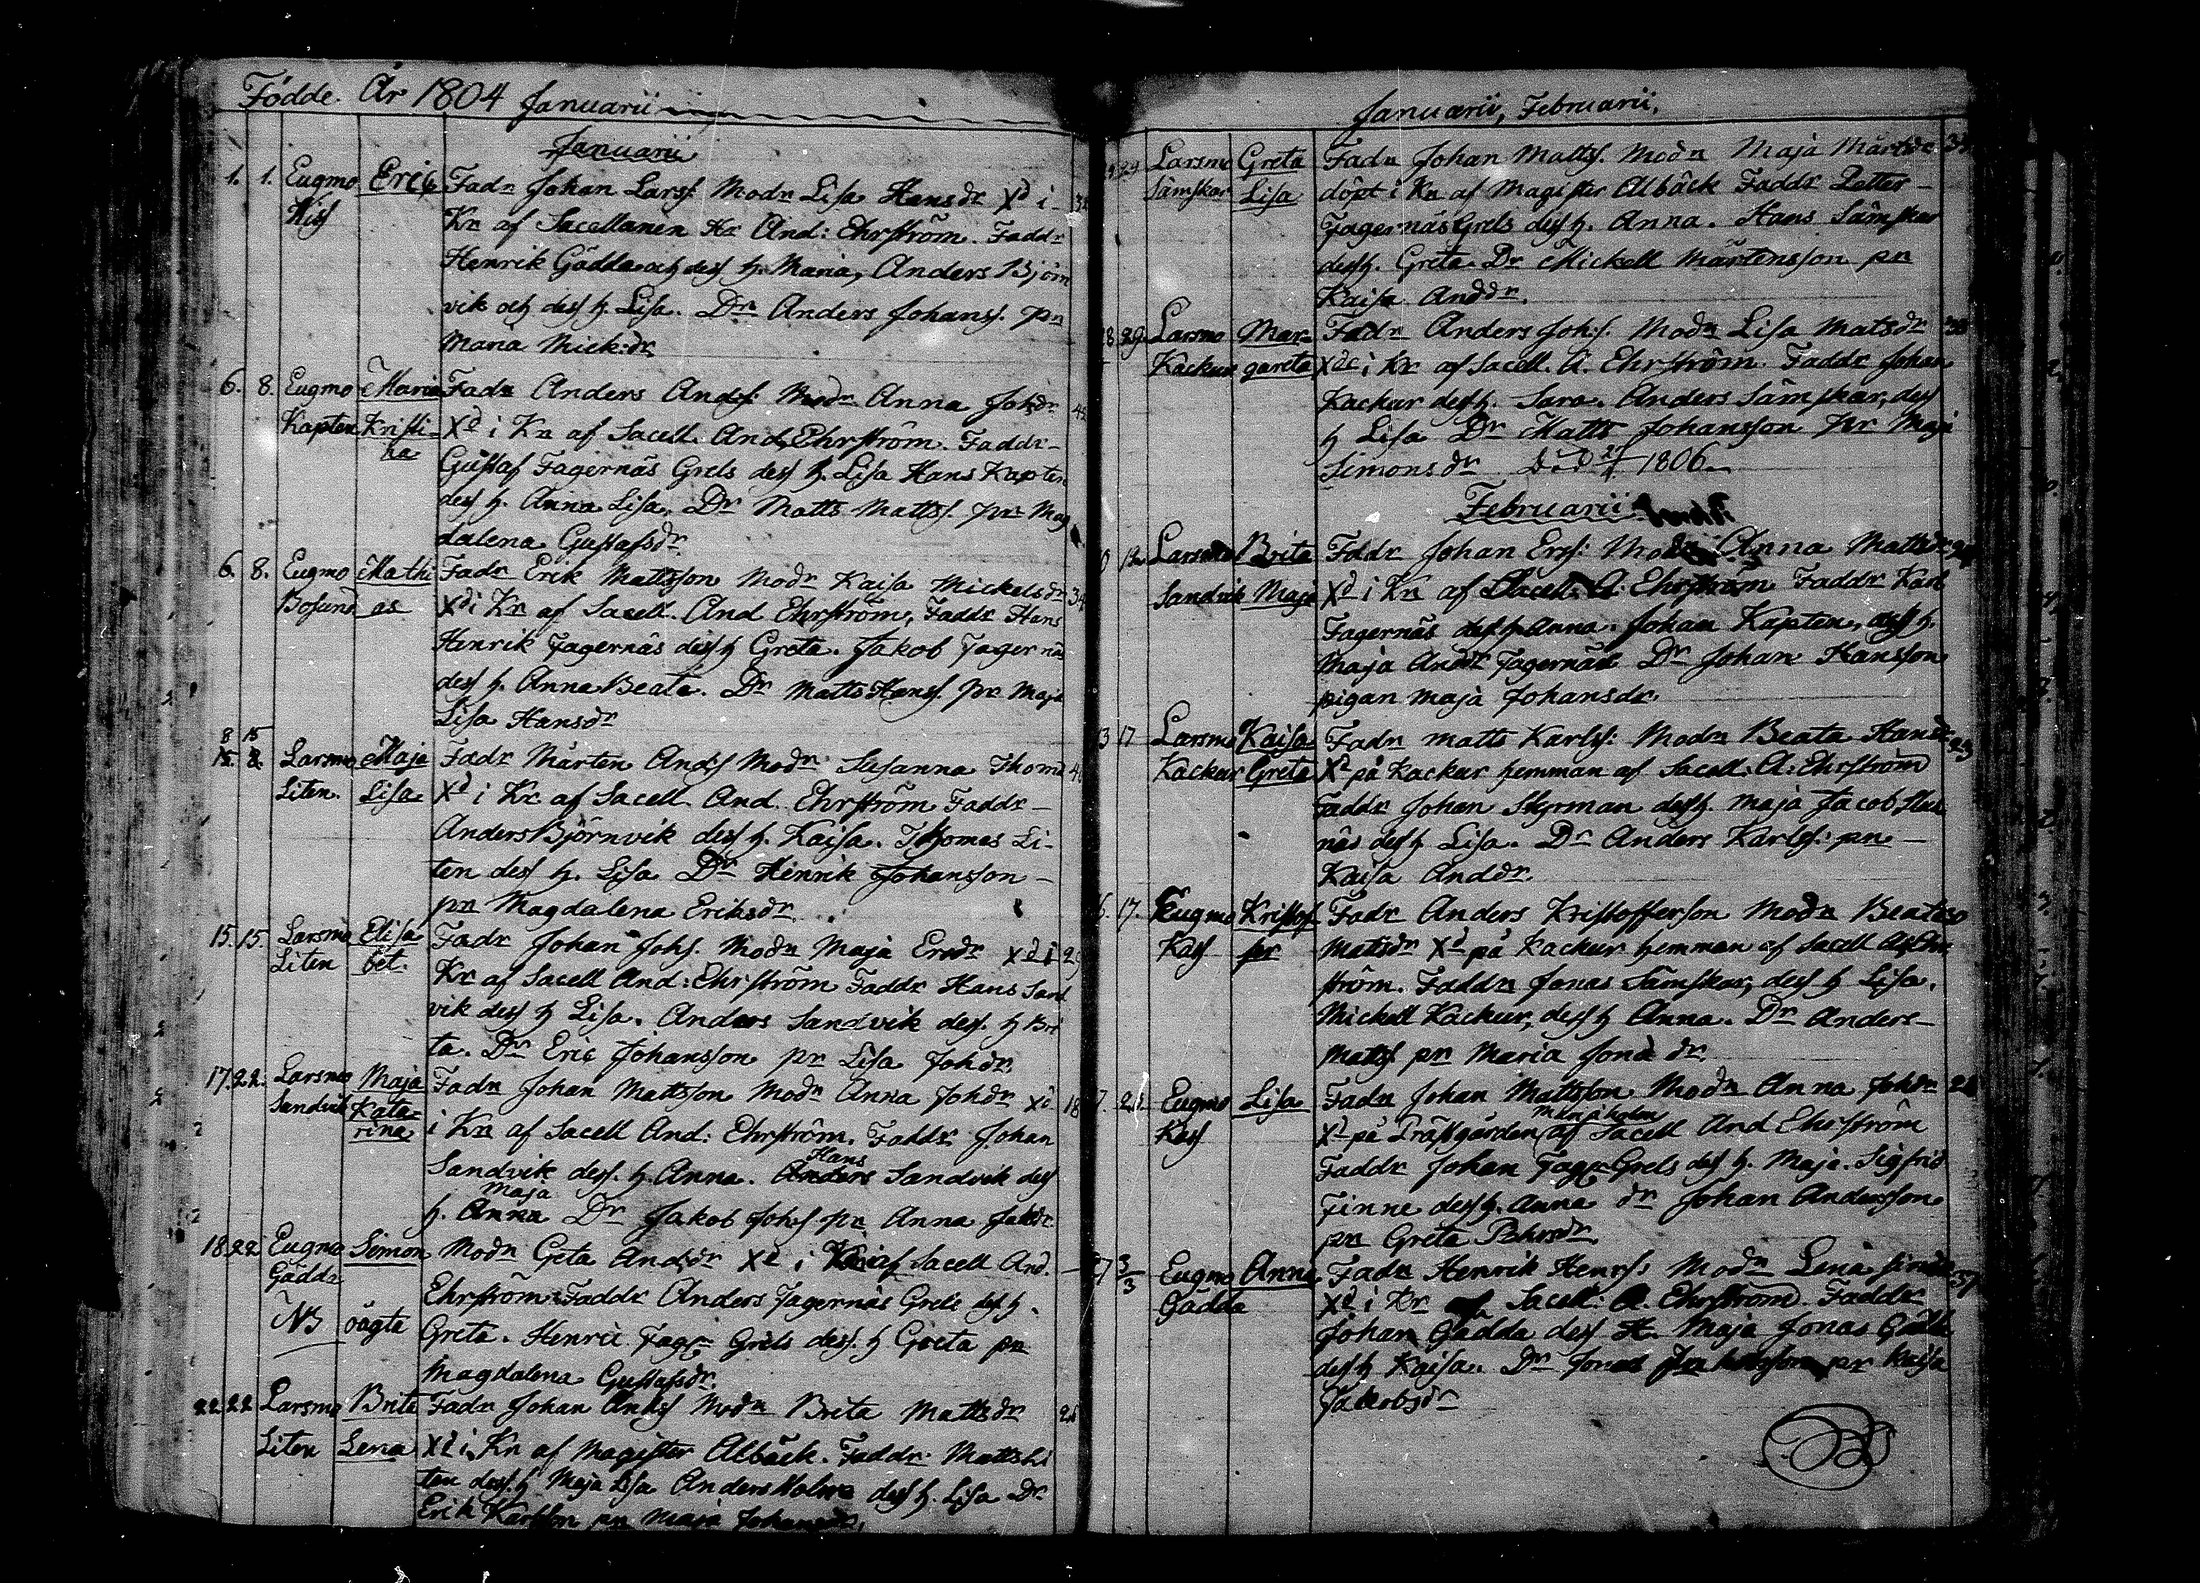 Födde År 1804 Januarii
Januarii
1. 1. Eugmo Eric Fadr Johan Larss. Modr Lisa Hansdr Xd i
Kiss Kr af Sacellanen Hr And: Ehrström. Faddr
Henrik Gädda och dess h. Maria, Anders Björn
vik och dess h. Lisa. Dr Anders Johanss. pn
Maria Mick:dr
6. 8. Eugmo Maria Fadr Anders Ands. Modr Anna Johdr
Kapten Kristi- Xd i Kr af Sacell. And. Ehrström. Faddr
na Gustaf Fagernäs Grels dess h. Lisa Hans Kapten
dess h. Anna Lisa. Dr Matts Matts. pr Mag
dalena Gustafsdr
6. 8. Eugmo Mathi Fadr Erik Mattsson Modr Kaisa Mickelsdr 34
Bosund as Xd i Kr af Sacell. And Ehrström, Faddr Hans
Henrik Fagernäs dess h Greta. Jakob Fagernäs
dess h. Anna Beata. Dr Matts Hanss. pr Maja
Lisa Hansdr
8 15
15 8 Larsmo Maja Fadr Mårten Ands Modr Susanna Thomd
Liten. Lisa Xd i Kr af Sacell And. Ehrström Faddr
Anders Björnvik dess h. Kaisa. Thomas Li-
ten dess h. Lisa Dr Henrik Johansson
pn Magdalena Eriksdr
15. 15. Larsmo Elisa Fadr Johan Johs. Modn Maja Ersdr Xd i 29
Liten bet. Kr af Sacell And: Ehrström Faddr Hans Sand
vik dess h Lisa. Anders Sandvik dess. h Bri
ta. Dr Eric Johansson pr Lisa Johdr
17. 22. Larsmo Maja Fadn Johan Mattsson Modr Anna Johdr Xd 18
Sandvik Kata- i Kn af Sacell And: Ehrström. Faddr Johan
rina Sandvik dess. h Anna. Anders Hans Sandvik dess
h. Anna Maja Dr Jakob Johs pn Anna Jakdr
18. 22 Eugmo Simon Modn Greta Andsdr Xd i Kr af Sacell And.
Gädda Ehrström Faddr Anders Fagernäs Grels dess h.
NB oägta Greta. Henric Fagr Grels dess. h Greta pn
Magdalena Gustafsdr
22. 22 Larsmo Brita Fadr Johan Ands Modn Brita Mattsdr 25
Liten Lena Xd i Kn af Magister Albäck. Faddr Matts Li
ten dess. h Maja Lisa Anders Holm dess h. Lisa Dr
Erik Karlson pn Maja Johansdr.
Januarii, Februarii.
29 Larsmo Greta Fadn Johan Matts. Modn Maja Mårtdr
Sämskar Lisa döpt i Kn af Magister Albäck Faddr Petter
Fagernäs Grels dess h. Anna. Hans Sämskar
dess h. Greta Dr Mickell Mårtensson pn
Kaisa Anddr.
28 29. Larsmo Mar- Fadr Anders Johs. Modn Lisa Matsdr
Kackur gareta Xdc i Kr af Sacell. A. Ehrström. Faddr Johan
Kackur dess h. Sara. Anders Sämskar, dess
h Lisa Dr Matts Johansson pr Maja
Simonsdr Död 1806
Februarii
12. Larsmo Brita Fadr Johan Erss: Modr Anna Mattsdr
Sandvik Maja Xd i Kn af Sacell: A: Ehrström Faddr Karl
Fagernäs dess h Anna. Johan Kapten, dess h.
Maja Andr Fagernäs Dr Johan Hansson
pigan Maja Johansdr.
13 17 Larsmo Kaisa Fadn Matts Karlss: Modn Beata Hansdr 23
Kackur Greta Xd på Kackur hemman af Sacell: A: Ehrström
Faddr Johan Styrman dess h. Maja Jacob
näs dess h Lisa. Dr Anders Karlss: pn
Kaisa Anddr.
16. 17. Eugmo Kristof- Fadr Anders Kristofferson Modn Beata
Kass fer Matsdr Xd på Kackur hemman af Sacell And Ehr
ström. Faddn Jonas Sämskar, dess h Lisa.
Mickell Kackur, dess h Anna. Dr Anders
Matts pn Maria Jonædr.
Eugmo Lisa Fadn Johan Mattsson Modn Anna Johdr 24
Kass Xd på Prästgården af Sacell And Ehrström
Faddr Johan Fagr Grels dess h. Maja. Sigfrid
Finne dess h. Anna dr Johan Andersson
pn Greta Pehrsdr.
27 3/3 Eugmo Anna Fadn Henrik Henrs: Modn Lena Simdr 37
Gädda Xd i Kr af Sacell: A. Ehrström. Faddr
Johan Gädda dess H. Maja Jonas Gädda
dess h Kaisa. Dr Jonas pr Kaisa
Jakobsdr